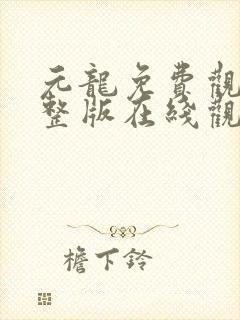 元龍免費觀
整版在綫觀
檐下鈴